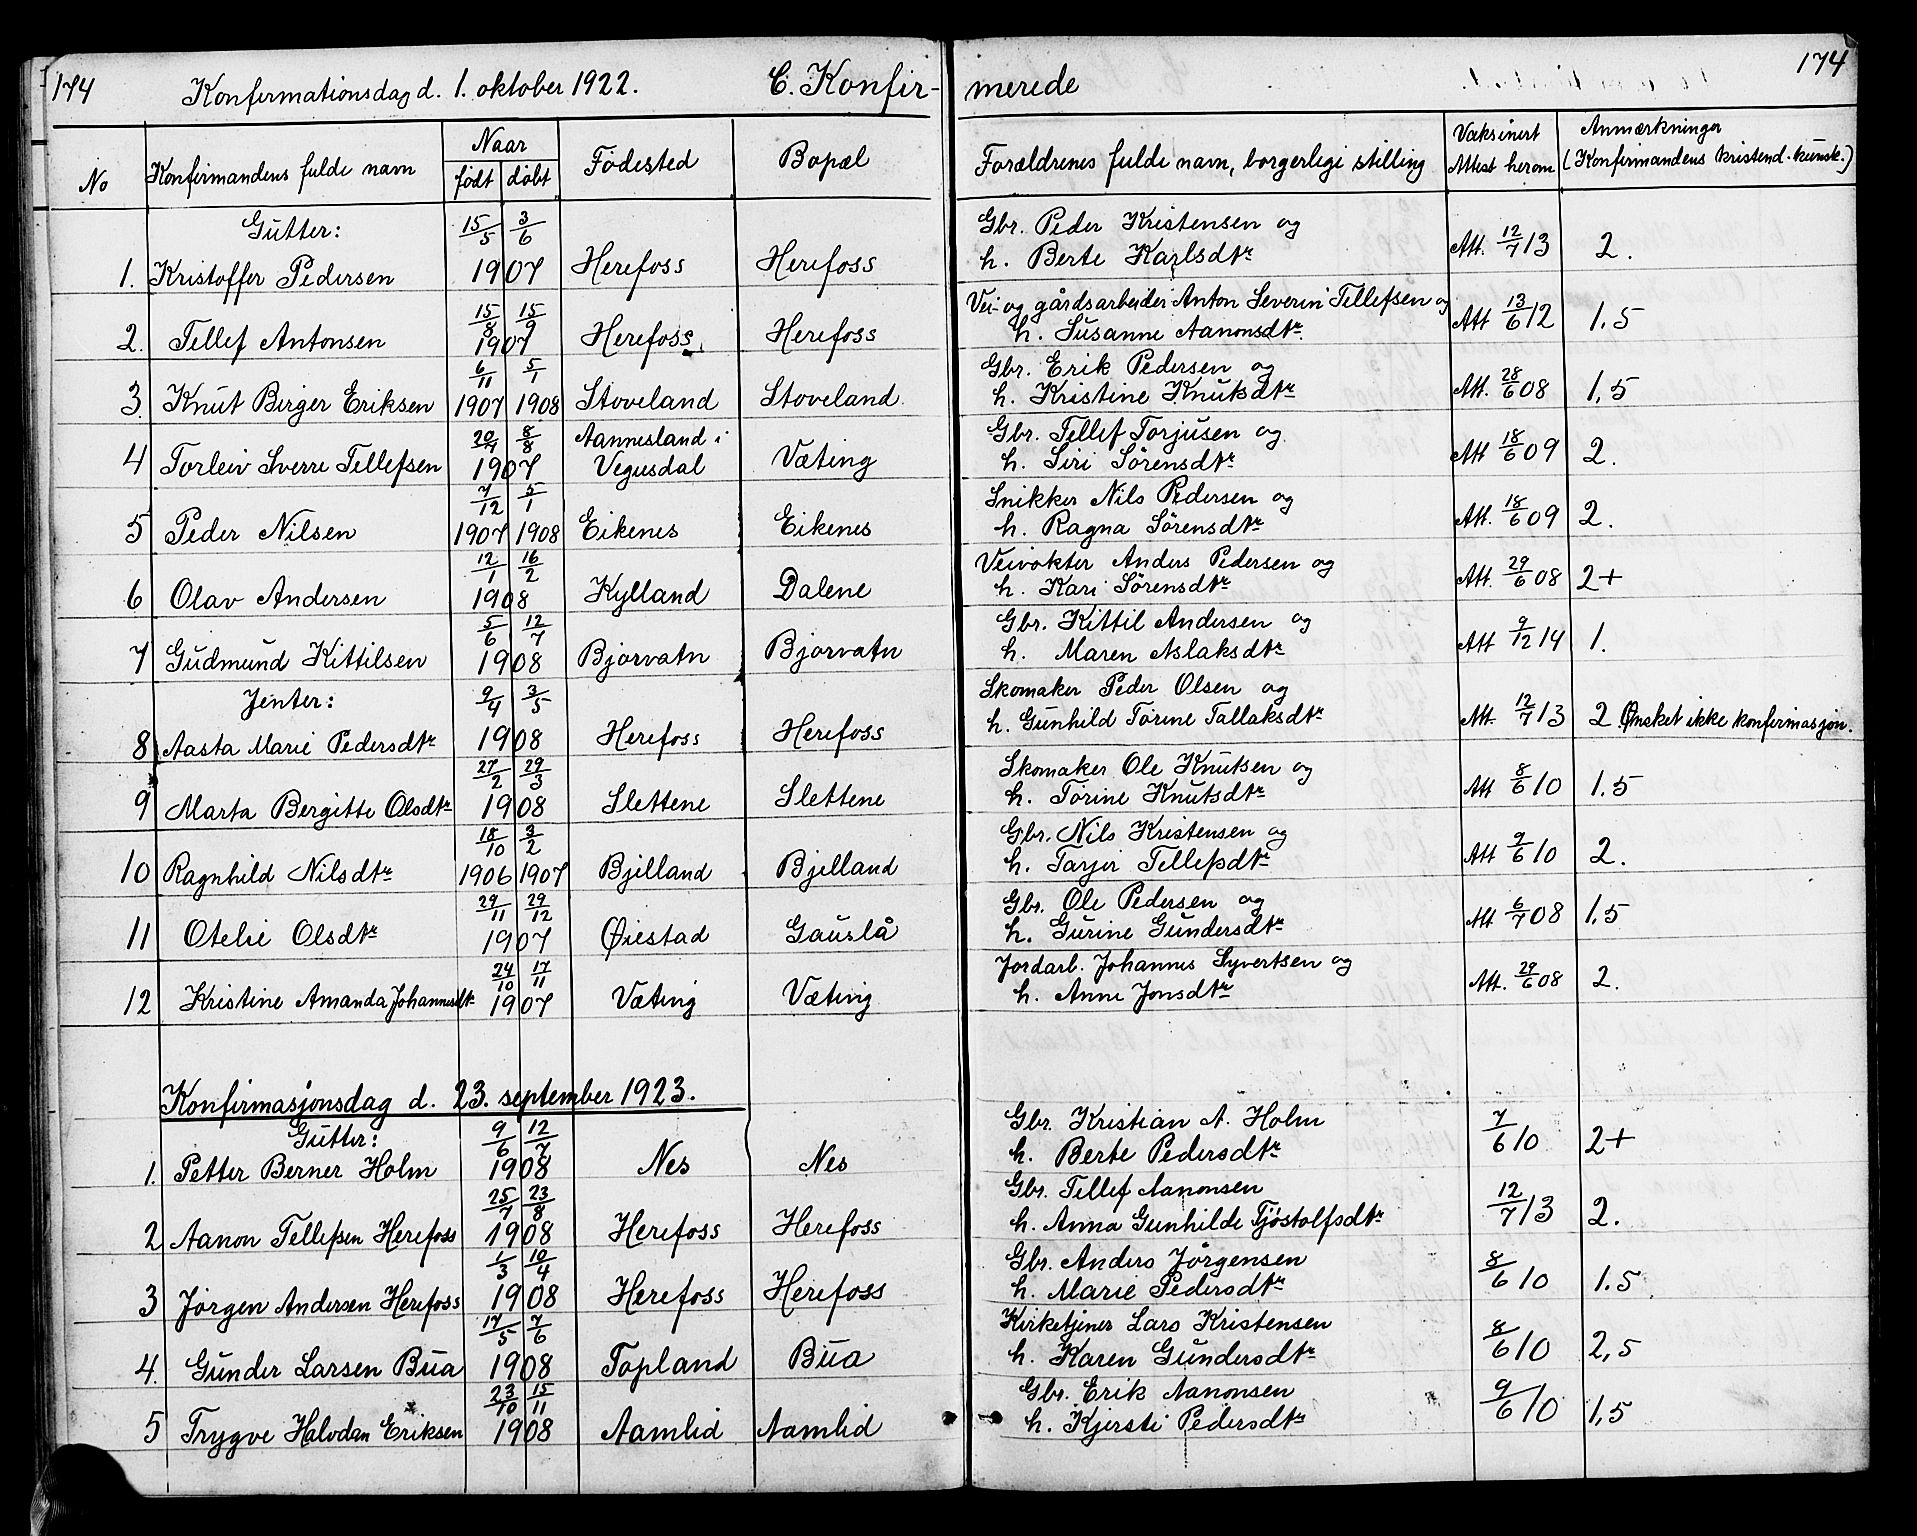 174 Konfirmationsdag d. 1. oktober 1922. C. Konfir- merede 174
No Konfirmandens fulde navn Naar født døbt Fødested Bopæl Forældrenes fulde navn, borgerlige stilling Vaksinert Attest herom Anmærkninger (Konfirmandens kristend.-kunsk.)
Gutter: 15/5 3/6 Gbr. Peder Kristensen og
1. Kristoffer Pedersen 1907 Herefoss Herefoss h. Berte Karlsdtr Att. 12/7 13 2.
15/8 15/9 Vei- og gårdsarbeider Anton Severin Tellefsen og
2. Tellef Antonsen 1907 Herefoss Herefoss h. Susanne Aanonsdtr. Att 13/6 12 1.5
6/11 5/1 Gbr. Erik Pedersen og
3. Knut Birger Eriksen 1907 1908 Stoveland Stoveland h. Kristine Knutsdtr Att. 28/6 08 1,5
20/4 8/8 Aannesland i Gbr. Tellef Torjusen og
4 Torleiv Sverre Tellefsen 1907 Vegusdal Væting h. Siri Sörensdtr Att 18/6 09 2.
7/12 5/1 Snikker Nils Pedersen og
5 Peder Nilsen 1907 1908 Eikenes Eikenes h. Ragna Sörensdtr Att. 18/6 09 2.
12/1 16/2 Veivokter Anders Pedersen og
6 Olav Andersen 1908 Kylland Dalene h. Kari Sörensdtr Att. 29/6 08 2+
5/6 12/7 Gbr. Kittil Andersen og
7 Gudmund Kittilsen 1908 Bjorvatn Bjorvatn h. Maren Aslaksdtr Att 9/12 14 1.
Jenter: 9/4 3/5 Skomaker Peder Olsen og
8 Aasta Marie Pedersdtr 1908 Herefoss Herefoss h. Gunhild Torine Tallaksdtr Att. 12/7 13 2 Ønsket ikke konfirmasjon.
27/2 29/3 Skomaker Ole Knutsen og
9 Marta Bergitte Olsdtr 1908 Slettene Slettene h. Torine Knutsdtr Att 8/6 10 1.5
18/10 3/2 Gbr. Nils Kristensen og
10 Ragnhild Nilsdtr 1906 1907 Bjelland Bjelland h. Tarjer Tellefsdtr Att 9/6 10 2.
29/11 29/12 Gbr. Ole Pedersen og
11 Otelie Olsdtr 1907 Øiestad Gauslå h. Gurine Gundersdtr Att 6/7 08 1,5
24/10 17/11 Jordarb. Johannes Syvertsen og
12 Kristine Amanda Johannesdtr 1907 Væting Væting h. Anne Jonsdtr Att. 29/6 08 2.
Konfirmasjonsdag d. 23. september 1923.
Gutter: 9/6 12/7 Gbr. Kristian A. Holm
1. Petter Berner Holm 1908 Nes Nes h. Berte Pedersdtr 7/6 10 2+
25/7 23/8 Gbr. Tellef Aanonsen
2 Aanon Tellefsen Herefoss 1908 Herefoss Herefoss h. Anna Gunhilde Tjöstolfsdtr 12/7 13 2.
1/3 10/4 Gbr. Anders Jörgensen
3 Jörgen Andersen Herefoss 1908 Herefoss Herefoss h. Marie Pedersdtr 8/6 10 1.5
17/5 7/6 Kirketjener Lars Kristensen
4. Gunder Larsen Bua 1908 Topland Bua h. Karen Gundersdtr 8/6 10 2,5
23/10 15/11 Gbr. Erik Aanonsen
5 Trygve Halvdan Eriksen 1908 Aamlid Aamlid h. Kjersti Pedersdtr 9/6 10 1,5